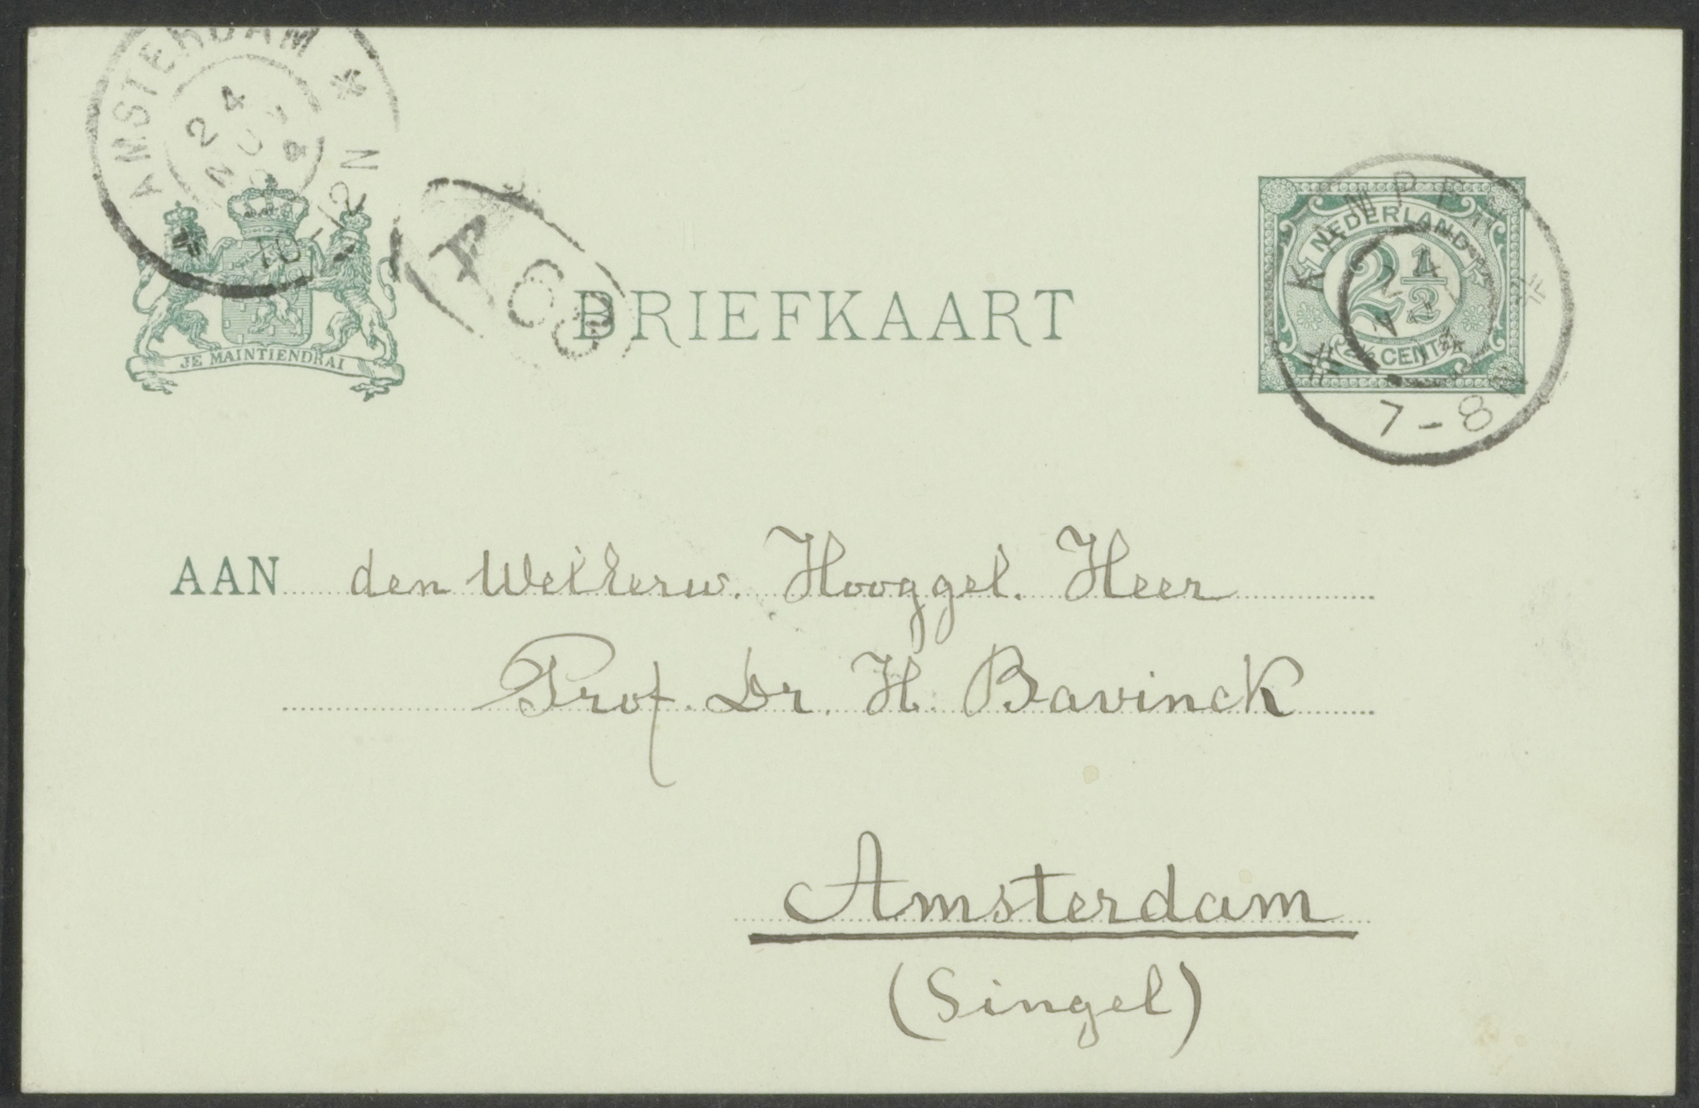 AMSTERDAM
24
10-12 N
JE MAINTIENDRAI
A 63
BRIEFKAART
KAMPEN
NEDERLAND
2½
2½ CENT
7-8
AAN den WelEerw. Hooggel. Heer
Prof. Dr. H. Bavinck
Amsterdam
(Singel)